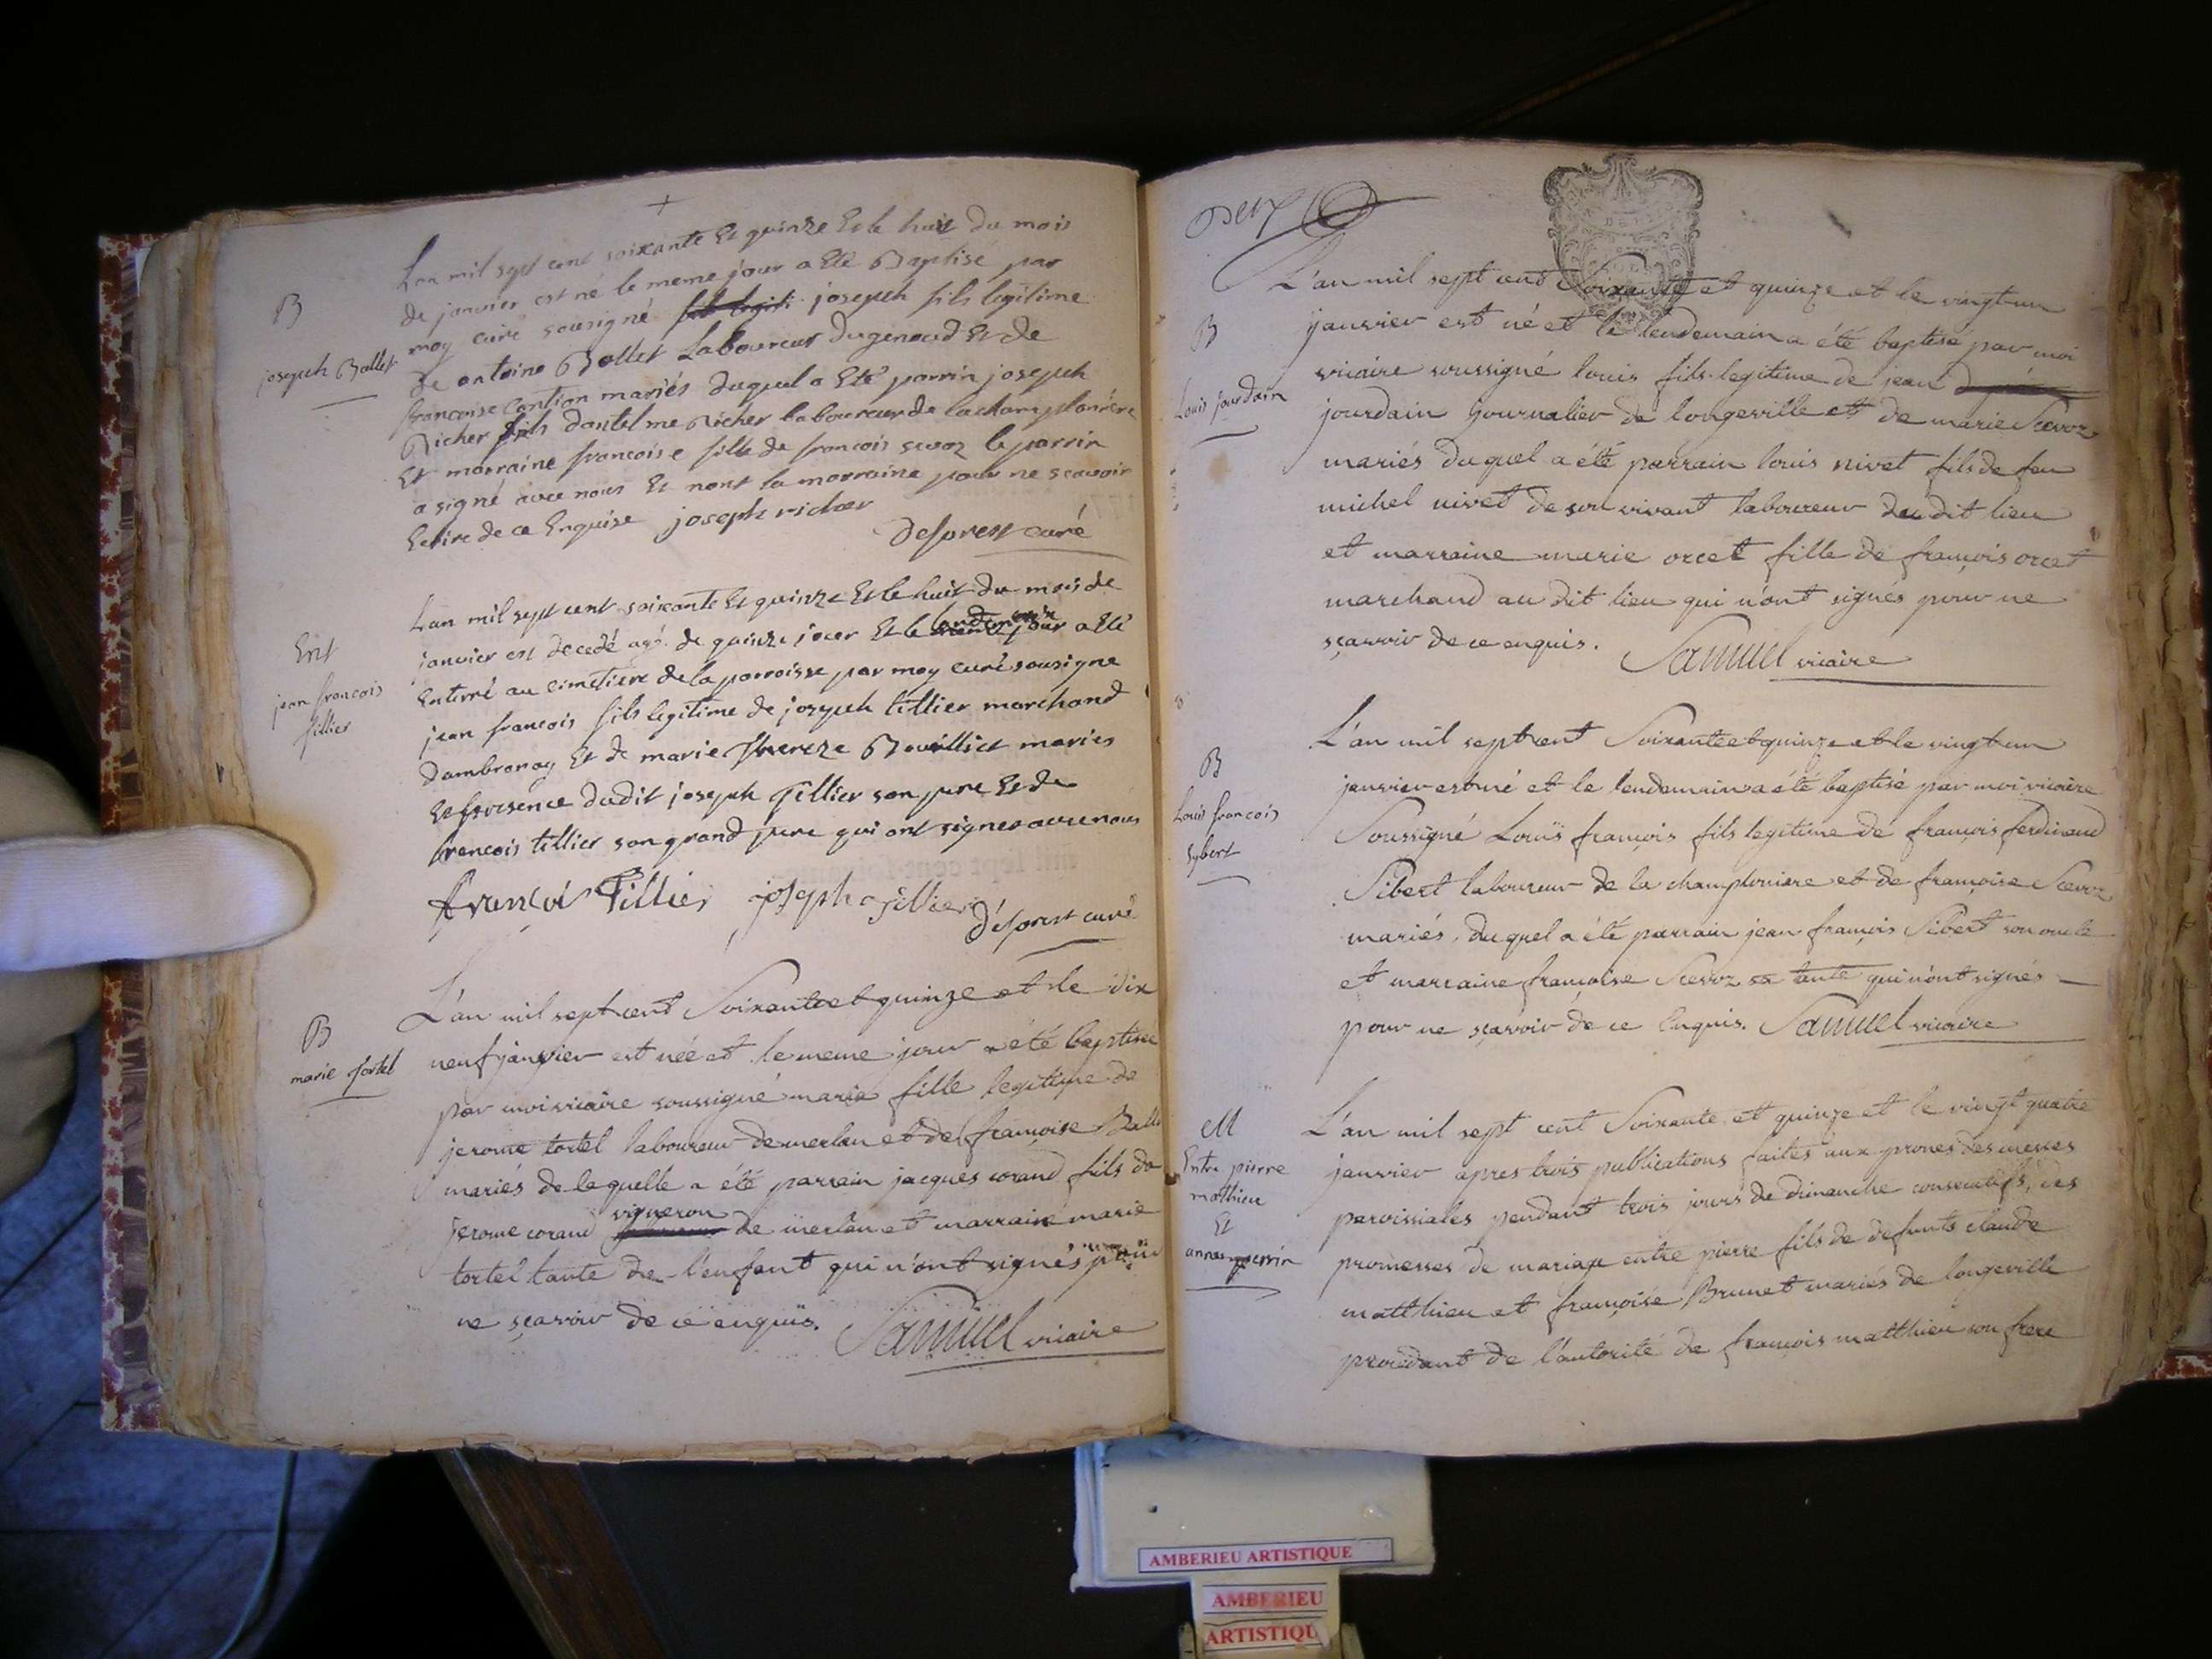 B
joseph Ballet
Lan mil sept cent soixante Et quinze Et le huit Du mois
de janvier est né le meme jour a Eté Baptisé par
moy curé sousigné joseph fils legitime
de antoine Ballet Laboureur Dugenoud Et de
francoise Contion mariés Duquel a Eté parrin joseph
Richer fils dantelme Richer laboureur de lachamplanière
Et marraine francoise fille de francois sevoz le parrin
a signé avec nous Et nont la marraine pour ne scavoir
Ecrire de ce Enquise joseph richer
Desprest curé
Ent
jean francois
tillier
Lan mil sept cent soixante Et quinze Et le huit du mois de
janvier est decedé agé de quinze jour Et le lendemain a Eté
Enterré au cimetiere de la parroisse par moy curé sousigne
jean francois fils legitime de joseph tillier marchand
Dambronay Et de marie Thereze Bouillier maries
En presence dudit joseph Tillier son pere Et de
francois tillier son grand pere qui ont signes avec nous
francois Tillier joseph Tillier
Desprest curé
B
marie tortel
L'an mil sept cent Soixante et quinze et le dix
neuf janvier est née et le meme jour a été baptisée
par moi vicaire soussigné marie fille legitime de
jerome tortel laboureur de merlan et de françoise Ballet
mariés de laquelle a été parrain jacques corand fils de
jerome corand vigneron de merlan et marraine marie
tortel tante de l'enfant qui n'ont signés pour
ne sçavoir de ce enquis.
Samuel vicaire
Deux
B
Louis jourdain
L'an mil sept cent Soixante et quinze et le vingt un
janvier est né et le lendemain a été baptisé par moi
vicaire soussigné louis fils legitime de jean
jourdain journalier de longeville et de marie Scevoz
mariés duquel a été parrain louis nivet fils de feu
michel nivet de son vivant laboureur du dit lieu
et marraine marie orcet fille de françois orcet
marchand au dit lieu qui n'ont signés pour ne
sçavoir de ce enquis. Samuel vicaire
B
Louis francois
Sybert
L'an mil sept cent Soixante et quinze et le vingt un
janvier est né et le lendemain a été baptisé par moi vicaire
Soussigné Louis françois fils legitime de françois ferdinand
Sibert laboureur de la champloniere et de françoise Scevoz
mariés, duquel a été parrain jean françois Sibert son oncle
et marraine françoise Scevoz sa tante qui n'ont signés
pour ne sçavoir de ce Enquis. Samuel vicaire
M
Entre pierre
mathieu
Et
anne perrin
L'an mil sept cent Soixante et quinze et le vingt quatre
janvier apres trois publications faites aux prones des messes
paroissiales pendant trois jours de dimanche consecutifs, des
promesses de mariage entre pierre fils de defunts claude
matthieu et françoise Brunet mariés de longeville
procedant de l'autorité de françois matthieu son frere
AMBERIEU ARTISTIQUE
AMBERIEU
ARTISTIQU